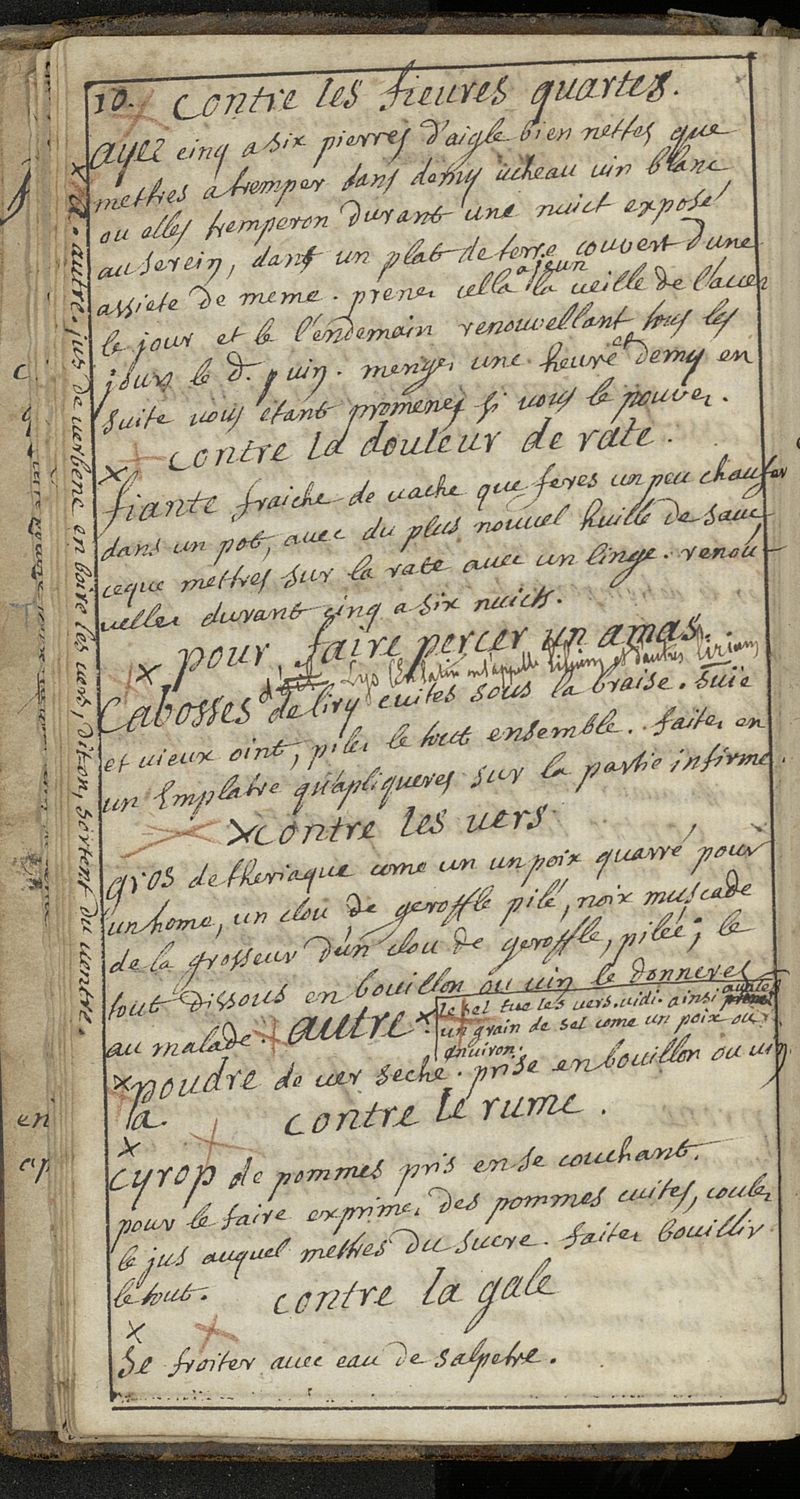 10. contre les fieures quartes.
ayez cinq a six pierres d'aigle bien nettes que
mettres a tremper dans demy ucheau uin blanc
ou elles tremperon durant une nuict exposé
au serein, dans un plat de terre couvert d'une
assiete de meme. prenez cella a jeun la veille de l'accez
le jour et le l'endemain renouvellant tous les
jours le d. vin. mengez une heure et demy en
suite vous etant promenez si vous le pouvez.
contre la douleur de rate.
fiante fraiche de vache que feres un peu chaufer
dans un pot, avec du plus nouvel huille de
ceque mettres sur la rate avec un linge. renou-
veller durant cinq a six nuicts.
pour faire percer un amas.
Lys (En latin est appellé Lilium et d'autres Lirium
Cabosses de liry cuites sous la braise. suïe
et vieux oint, pilez le tout ensemble. faites en
un Emplatre qu'apliqueres sur la partie infirme.
contre les vers
gros de theriaque come un un poix quarré pour
un home, un clou de geroffle pilé, noix muscade
de la grosseur d'un clou de geroffle, pilée; le
tout dissous en bouillon ou vin le donneres
au malade. autre
le sel tue les vers. vidi. ainsi
un grain de sel come un poix ou
environ.
poudre de ver seche. prise en bouillon ou vin
a. contre le rume.
cyrop de pommes pris en se couchant.
pour le faire exprimez des pommes cuites, coulez
le jus auquel mettres du sucre. faites bouillir
le tout. contre la gale
se froiter avec eau de salpetre.
a. autre. jus de verbene en boire les vers, dit on, sortent du ventre.